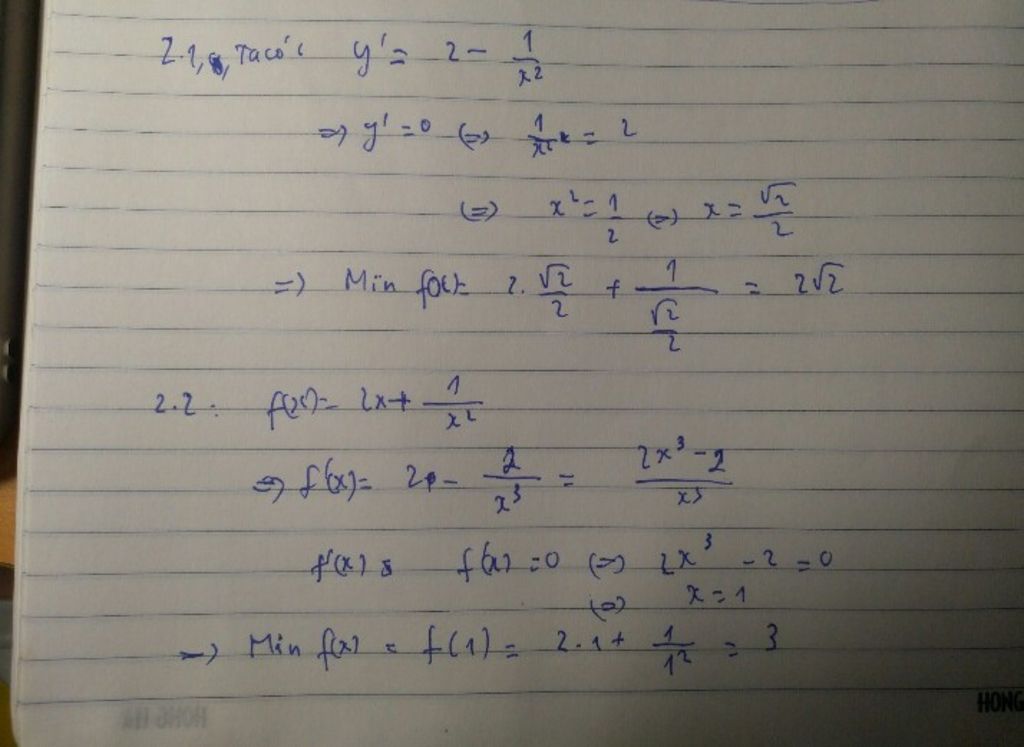 2.1, Ta có: y' = 2 - 1/x²
=> y' = 0 (=) 1/x² = 2
(=) x² = 1/2 (=) x = √2/2
=) Min f(x) = 2. √2/2 + 1/(√2/2) = 2√2
2.2: f(x) = 2x + 1/x²
=) f'(x) = 2 - 2/x³ = (2x³ - 2)/x³
f'(x) f'(x) = 0 (=) 2x³ - 2 = 0
(=) x = 1
=) Min f(x) = f(1) = 2.1 + 1/1² = 3
HONG